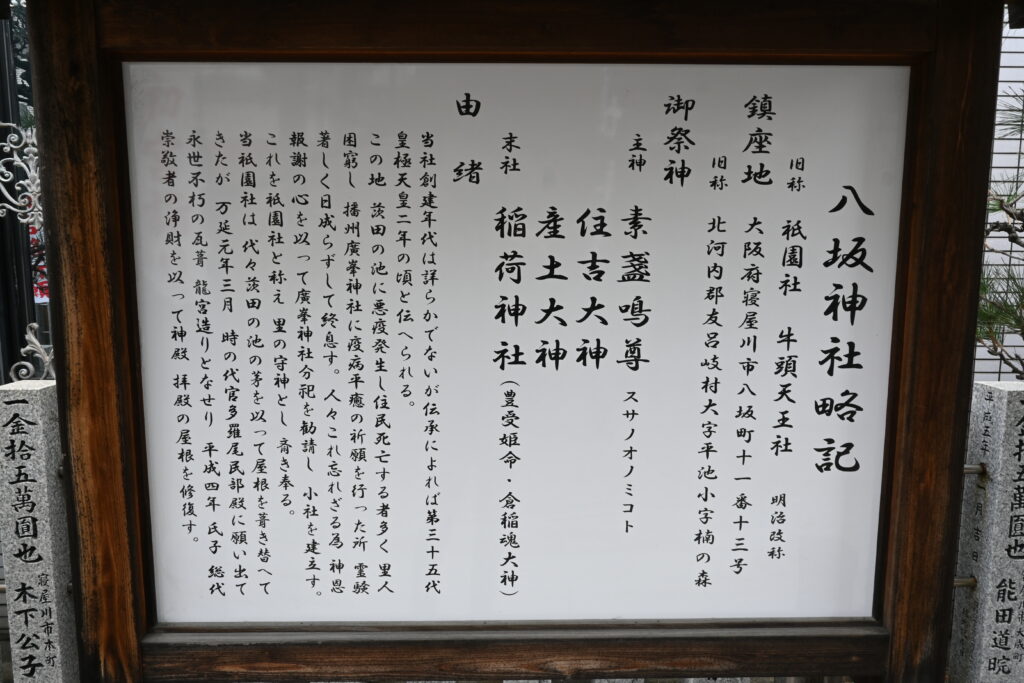 八坂神社略記
旧称 祇園社 牛頭天王社 明治改称
鎮座地 大阪府寝屋川市八坂町十一番十三号
旧称 北河内郡友呂岐村大字平池小字楠の森
御祭神
主神 素盞鳴尊 スサノオノミコト
住吉大神
産土大神
末社 稲荷神社(豊受姫命・倉稲魂大神)
由緒
当社創建年代は詳らかでないが伝承によれば第三十五代
皇極天皇二年の頃と伝へられる。
この地 茨田の池に悪疫発生し住民死亡する者多く 里人
困窮し 播州廣峯神社に疫病平癒の祈願を行った所 霊験
著しく日成らずして終息す。人々これ忘れざる為 神恩
報謝の心を以って廣峯神社分祀を勧請し 小社を建立す。
これを祇園社と称え 里の守神とし 斎き奉る。
当祇園社は 代々茨田の池の茅を以って屋根を葺き替へて
きたが 万延元年三月 時の代官多羅尾民部殿に願い出て
永世不朽の瓦葺 龍宮造りとなせり 平成四年 氏子 総代
崇敬者の浄財を以って神殿 拝殿の屋根を修復す。
一金拾五萬圓也 寝屋川市木町 木下公子
金拾五萬圓也 能田道晥
平成五年 月吉日